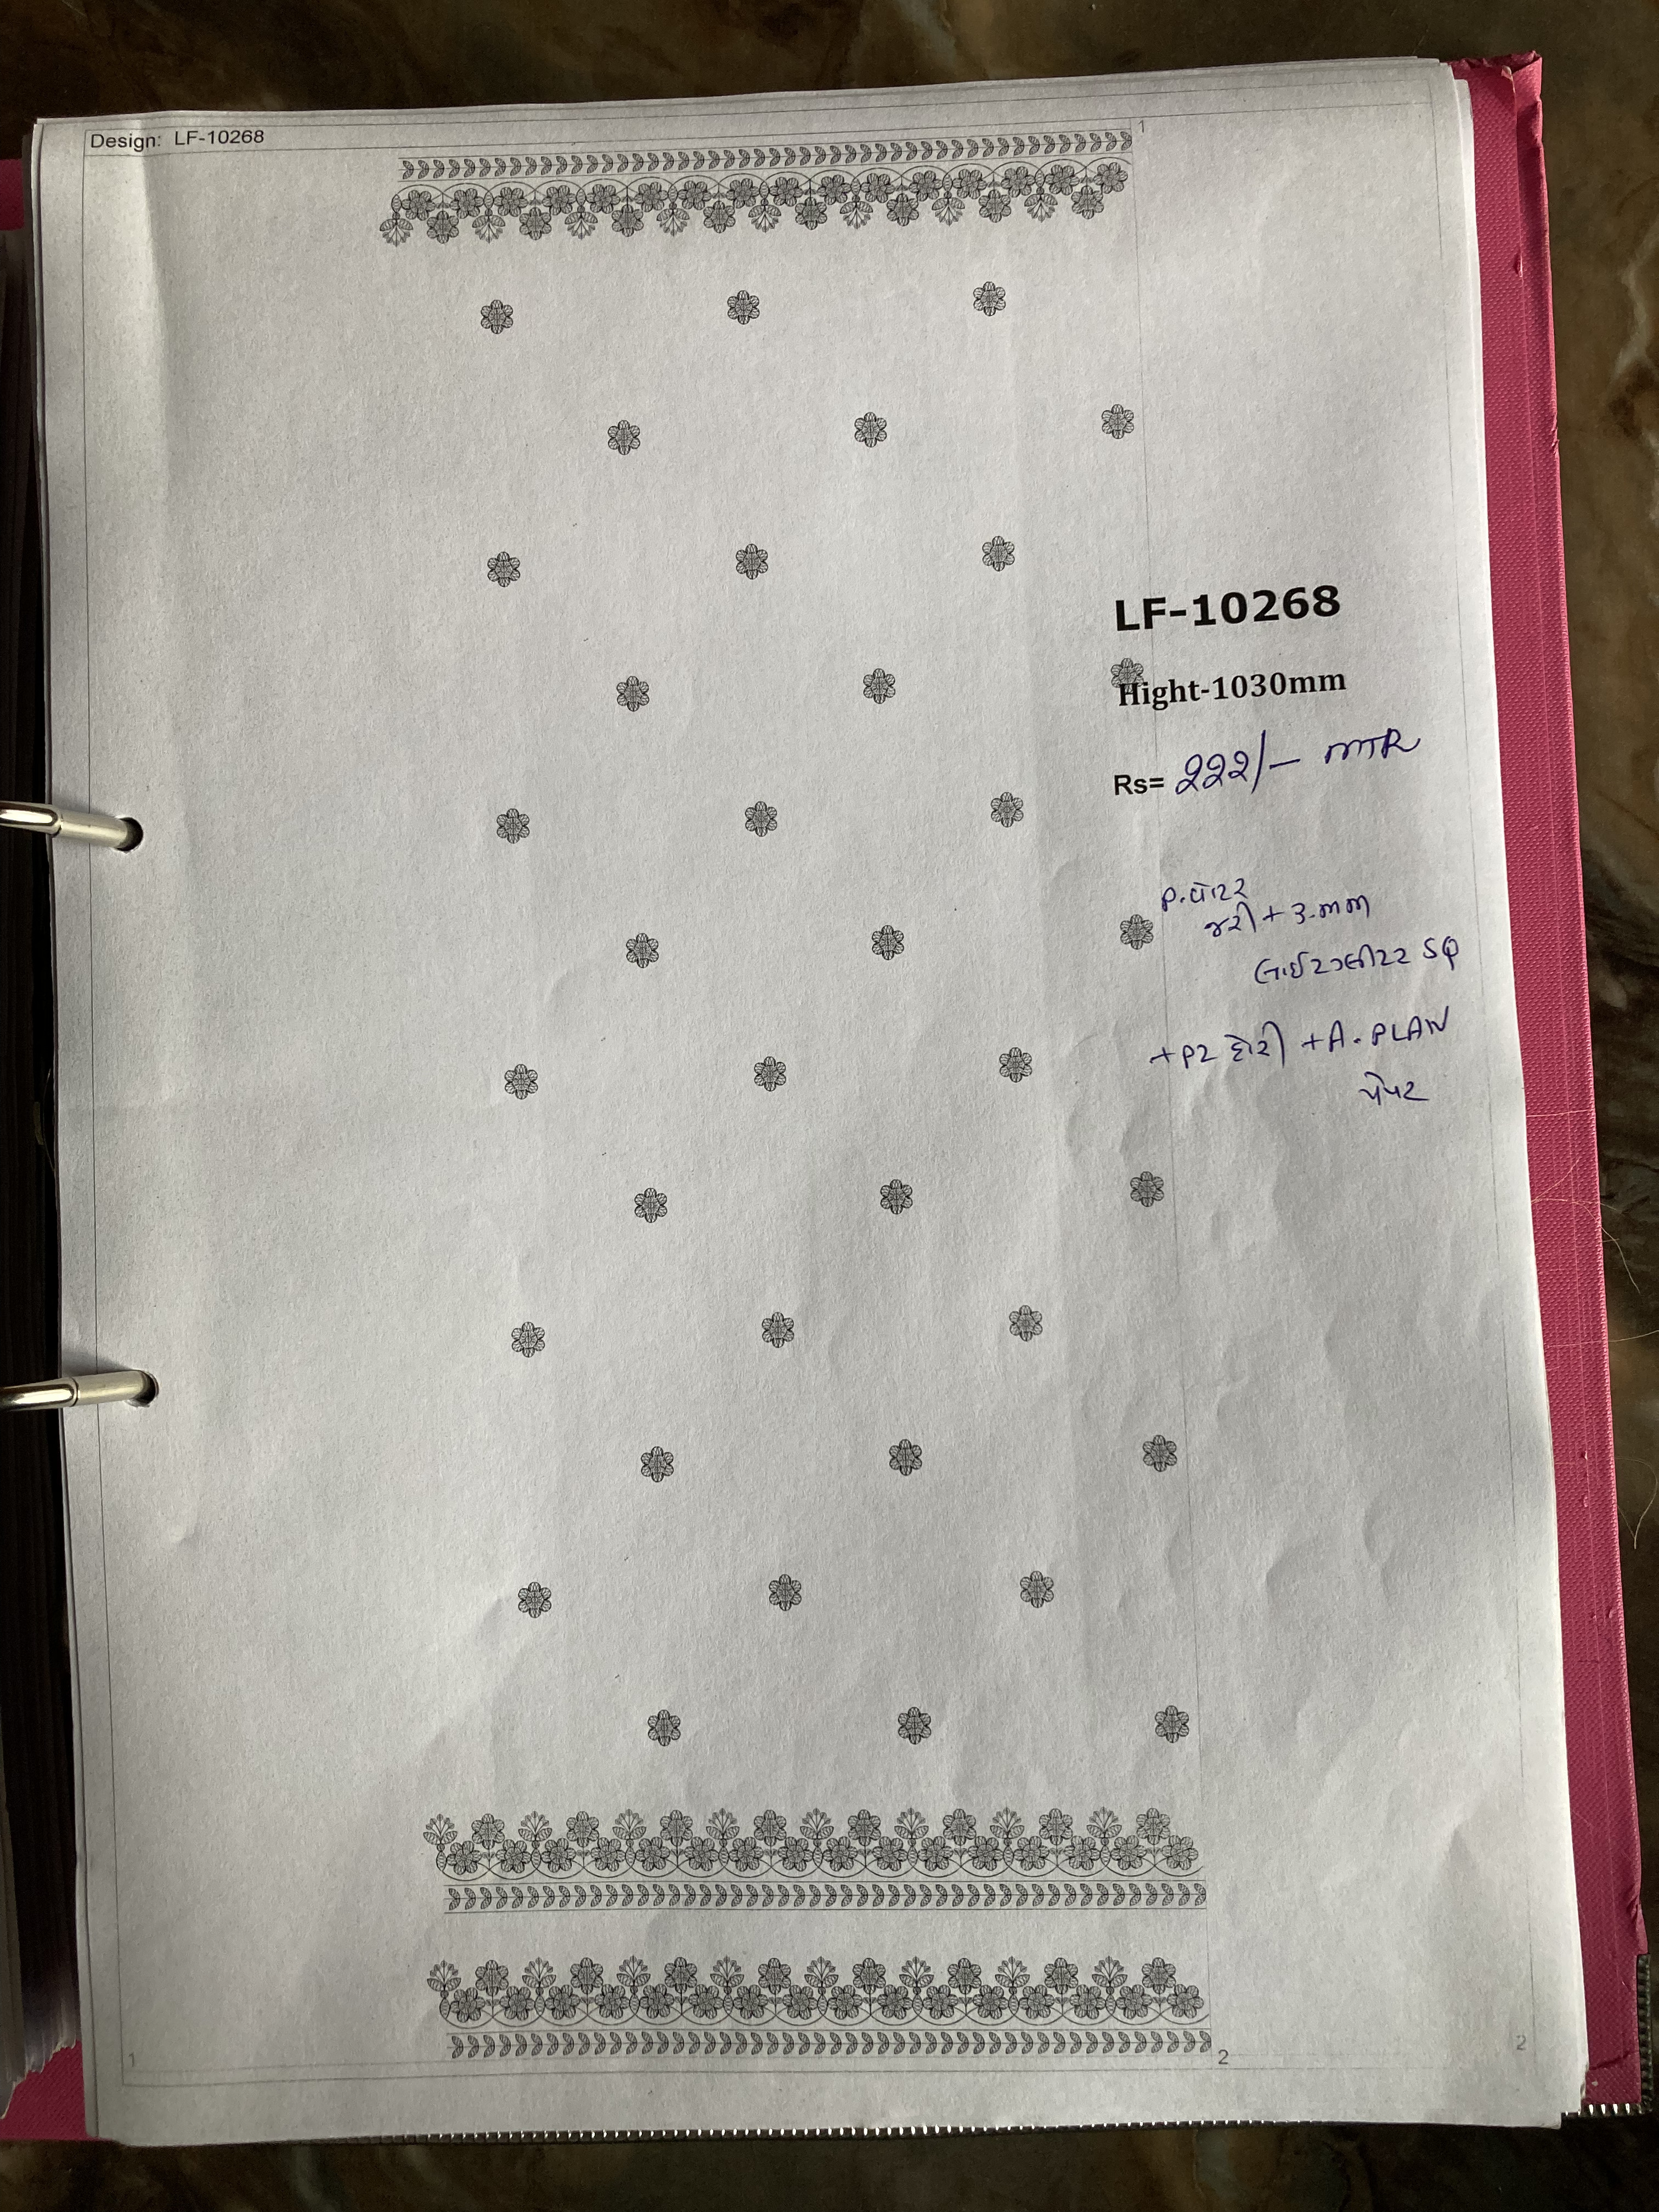 Design: LF-10268
1
LF-10268
Hight-1030mm
Rs= 222/- MTR
P.વોટર
જરી + 3.mm
લાઈટ SQ
+ P2 દોરી + A. PLAN
પેપર
1
2
2